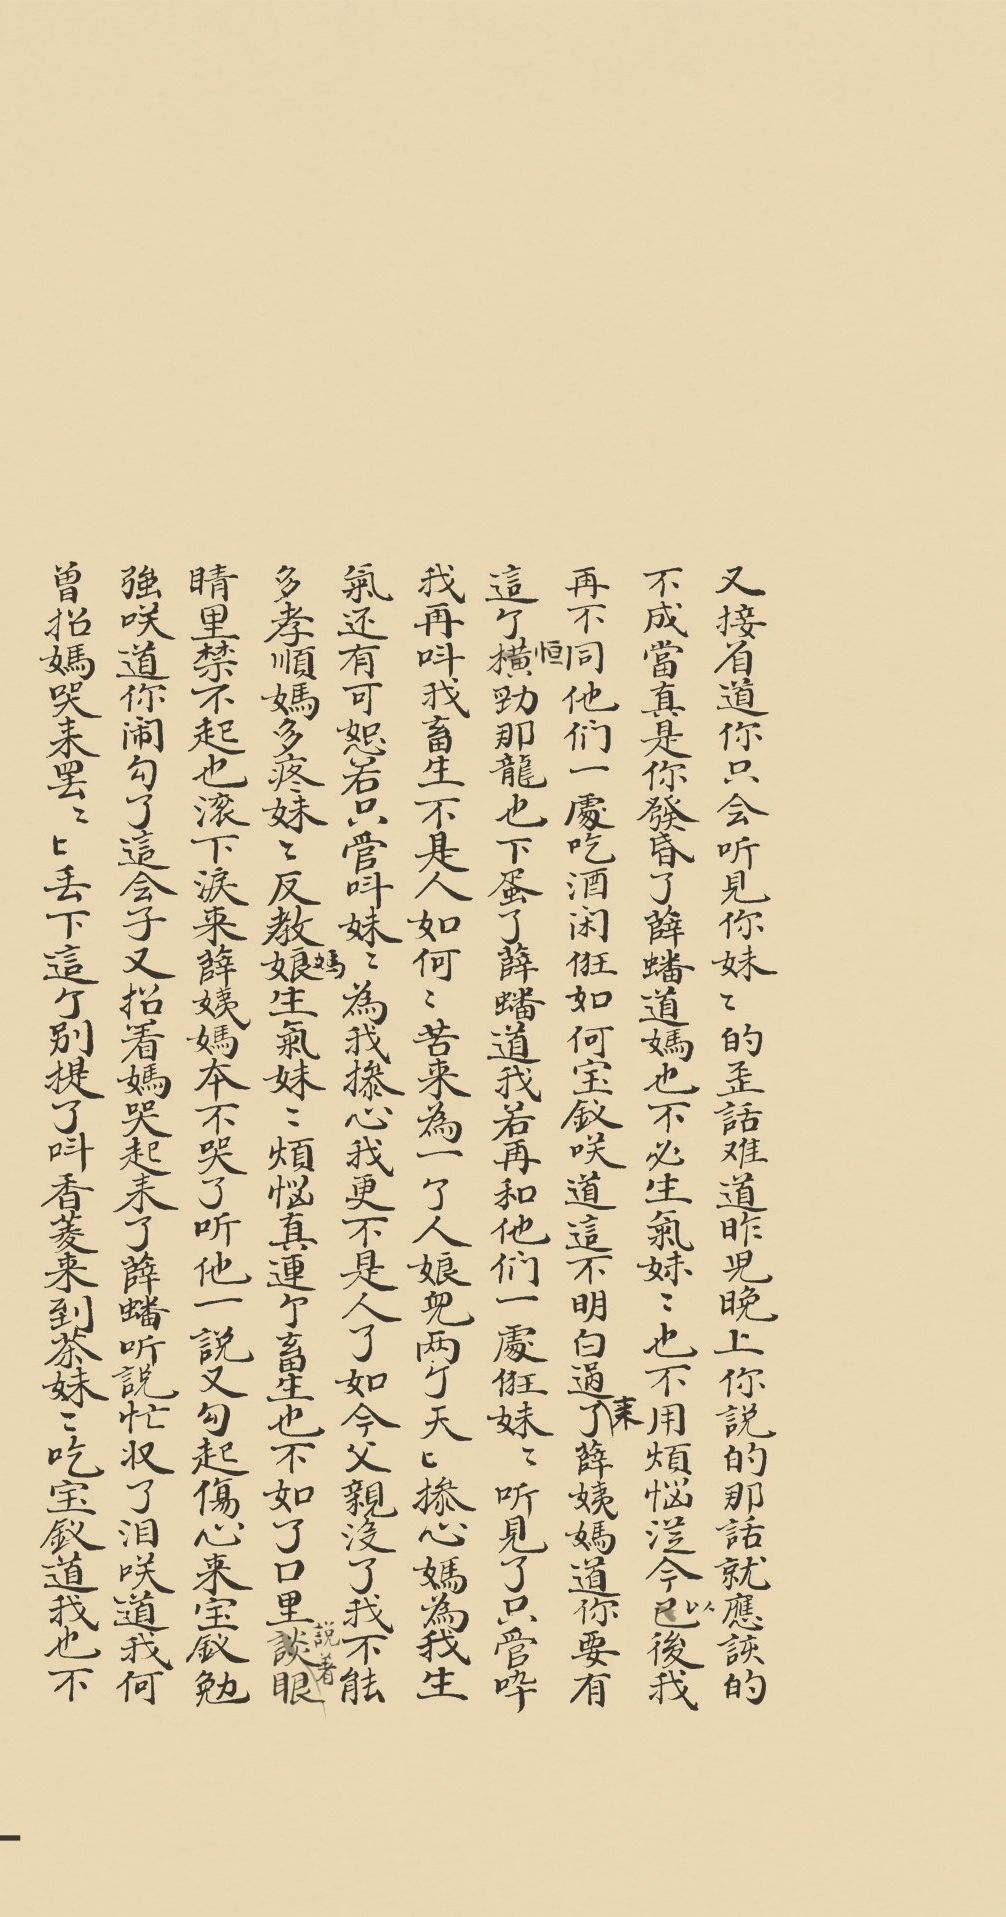 又接着道你只会听见你妹〻的歪話难道昨児晚上你説的那話就應該的
不成當真是你發昏了薛蟠道媽也不必生氣妹〻也不用煩惱從今已以後我
再不同他们一處吃酒闲俇如何宝釵咲道這不明白過来了薛姨媽道你要有
這个橫恒勁那龍也下蛋了薛蟠道我若再和他们一處俇妹〻听見了只管啐
我再呌我畜生不是人如何〻苦来為一个人娘兒两个天〻摻心媽為我生
氣还有可恕若只管呌妹〻為我摻心我更不是人了如今父親没了我不能
多孝順媽多疼妹〻反教娘媽生氣妹〻煩惱真連个畜生也不如了口里談説着眼
睛里禁不起也滚下淚来薛姨媽本不哭了听他一説又勾起傷心来宝釵勉
強咲道你闹勾了這会子又招着媽哭起来了薛蟠听説忙收了泪咲道我何
曾招媽哭来罢〻〻丢下這个别提了呌香菱来到茶妹〻吃宝釵道我也不